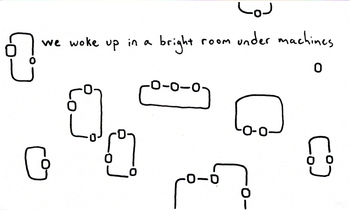 we woke up in a bright room under machines